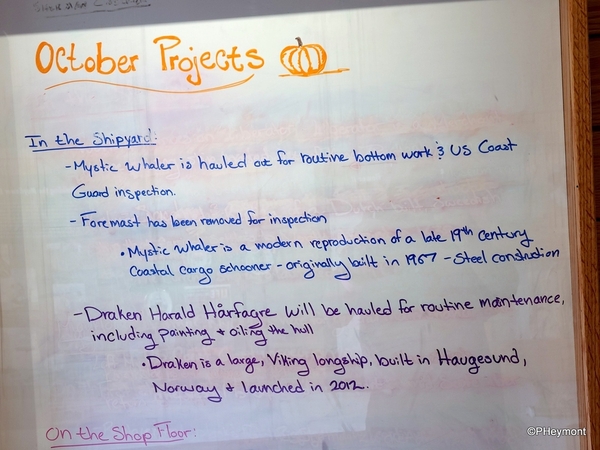 October Projects
In the Shipyard:
- Mystic Whaler is hauled out for routine bottom work & US Coast
Guard inspection.
- Foremast has been removed for inspection
• Mystic Whaler is a modern reproduction of a late 19th century
Coastal cargo schooner - originally built in 1967 - Steel construction
- Draken Harald Hårfagre will be hauled for routine maintenance,
including painting + oiling the hull
• Draken is a large, Viking longship, built in Haugesund,
Norway + launched in 2012.
On the Shop Floor:
©PHeymont